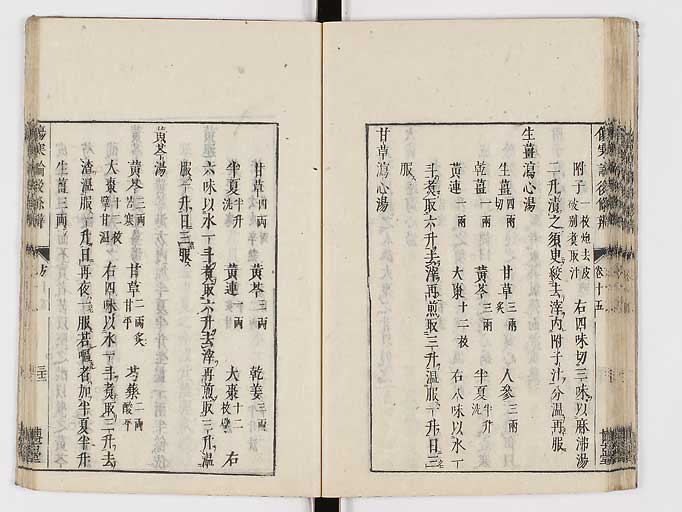 附子一枚炮去皮破別煮取汁 右四味切三味以麻沸湯
二升漬之須臾絞去滓内附子汁分溫再服
生薑瀉心湯
生薑四兩切 甘草三兩炙 人參三兩
乾薑一兩 黃芩三兩 半夏半升洗
黃連一兩 大棗十二枚 右八味以水一
斗煮取六升去滓再煎取三升溫服一升日三
服
甘草瀉心湯
卷十五
甘草四兩 黃芩三兩 乾姜三兩
半夏半升洗 黃連一兩 大棗十二枚擘 右
六味以水一斗煮取六升去滓再煎取三升溫
服一升日三服
黃芩湯
黃芩三兩苦寒 甘草二兩炙甘平 芍藥二兩酸平
大棗十二枚擘甘溫 右四味以水一斗煮取三升去
渣溫服一升日再夜一服若嘔者加半夏半升
生薑三兩
傷寒論後條辨
方